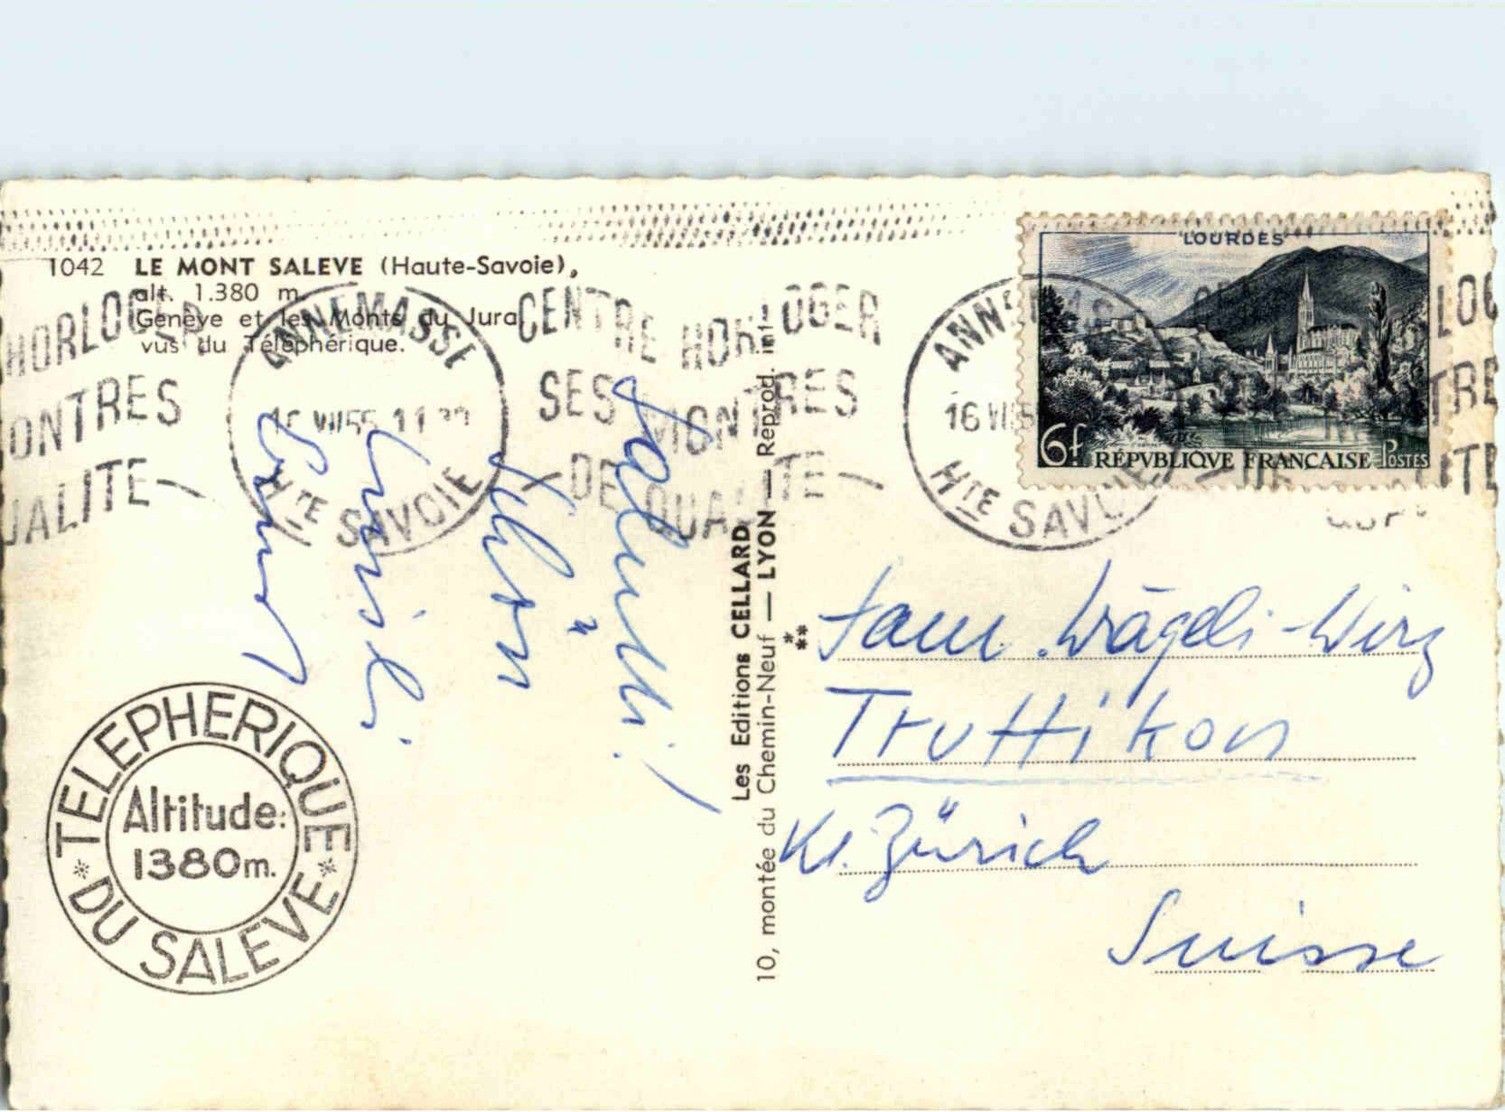 1042 LE MONT SALEVE (Haute-Savoie),
alt. 1.380 m.
Genève et les Monts du Jura
vus du Téléphérique.
HORLOGER
MONTRES
QUALITE
ANNEMASSE
11 30
Hte SAVOIE
CENTRE HORLOGER
SES MONTRES
DE QUALITE
ANNEMASSE
16 VII 5
Hte SAVOIE
LOURDES
6f RÉPVBLIQVE FRANÇAISE POSTES
Les Editions CELLARD
10, montée du Chemin-Neuf — LYON — Reprod. int.
Fam. Wägeli-Wirz
Truttikon
Kt. Zürich
Suisse
TELEPHERIQUE
DU SALEVE
Altitude:
1380m.